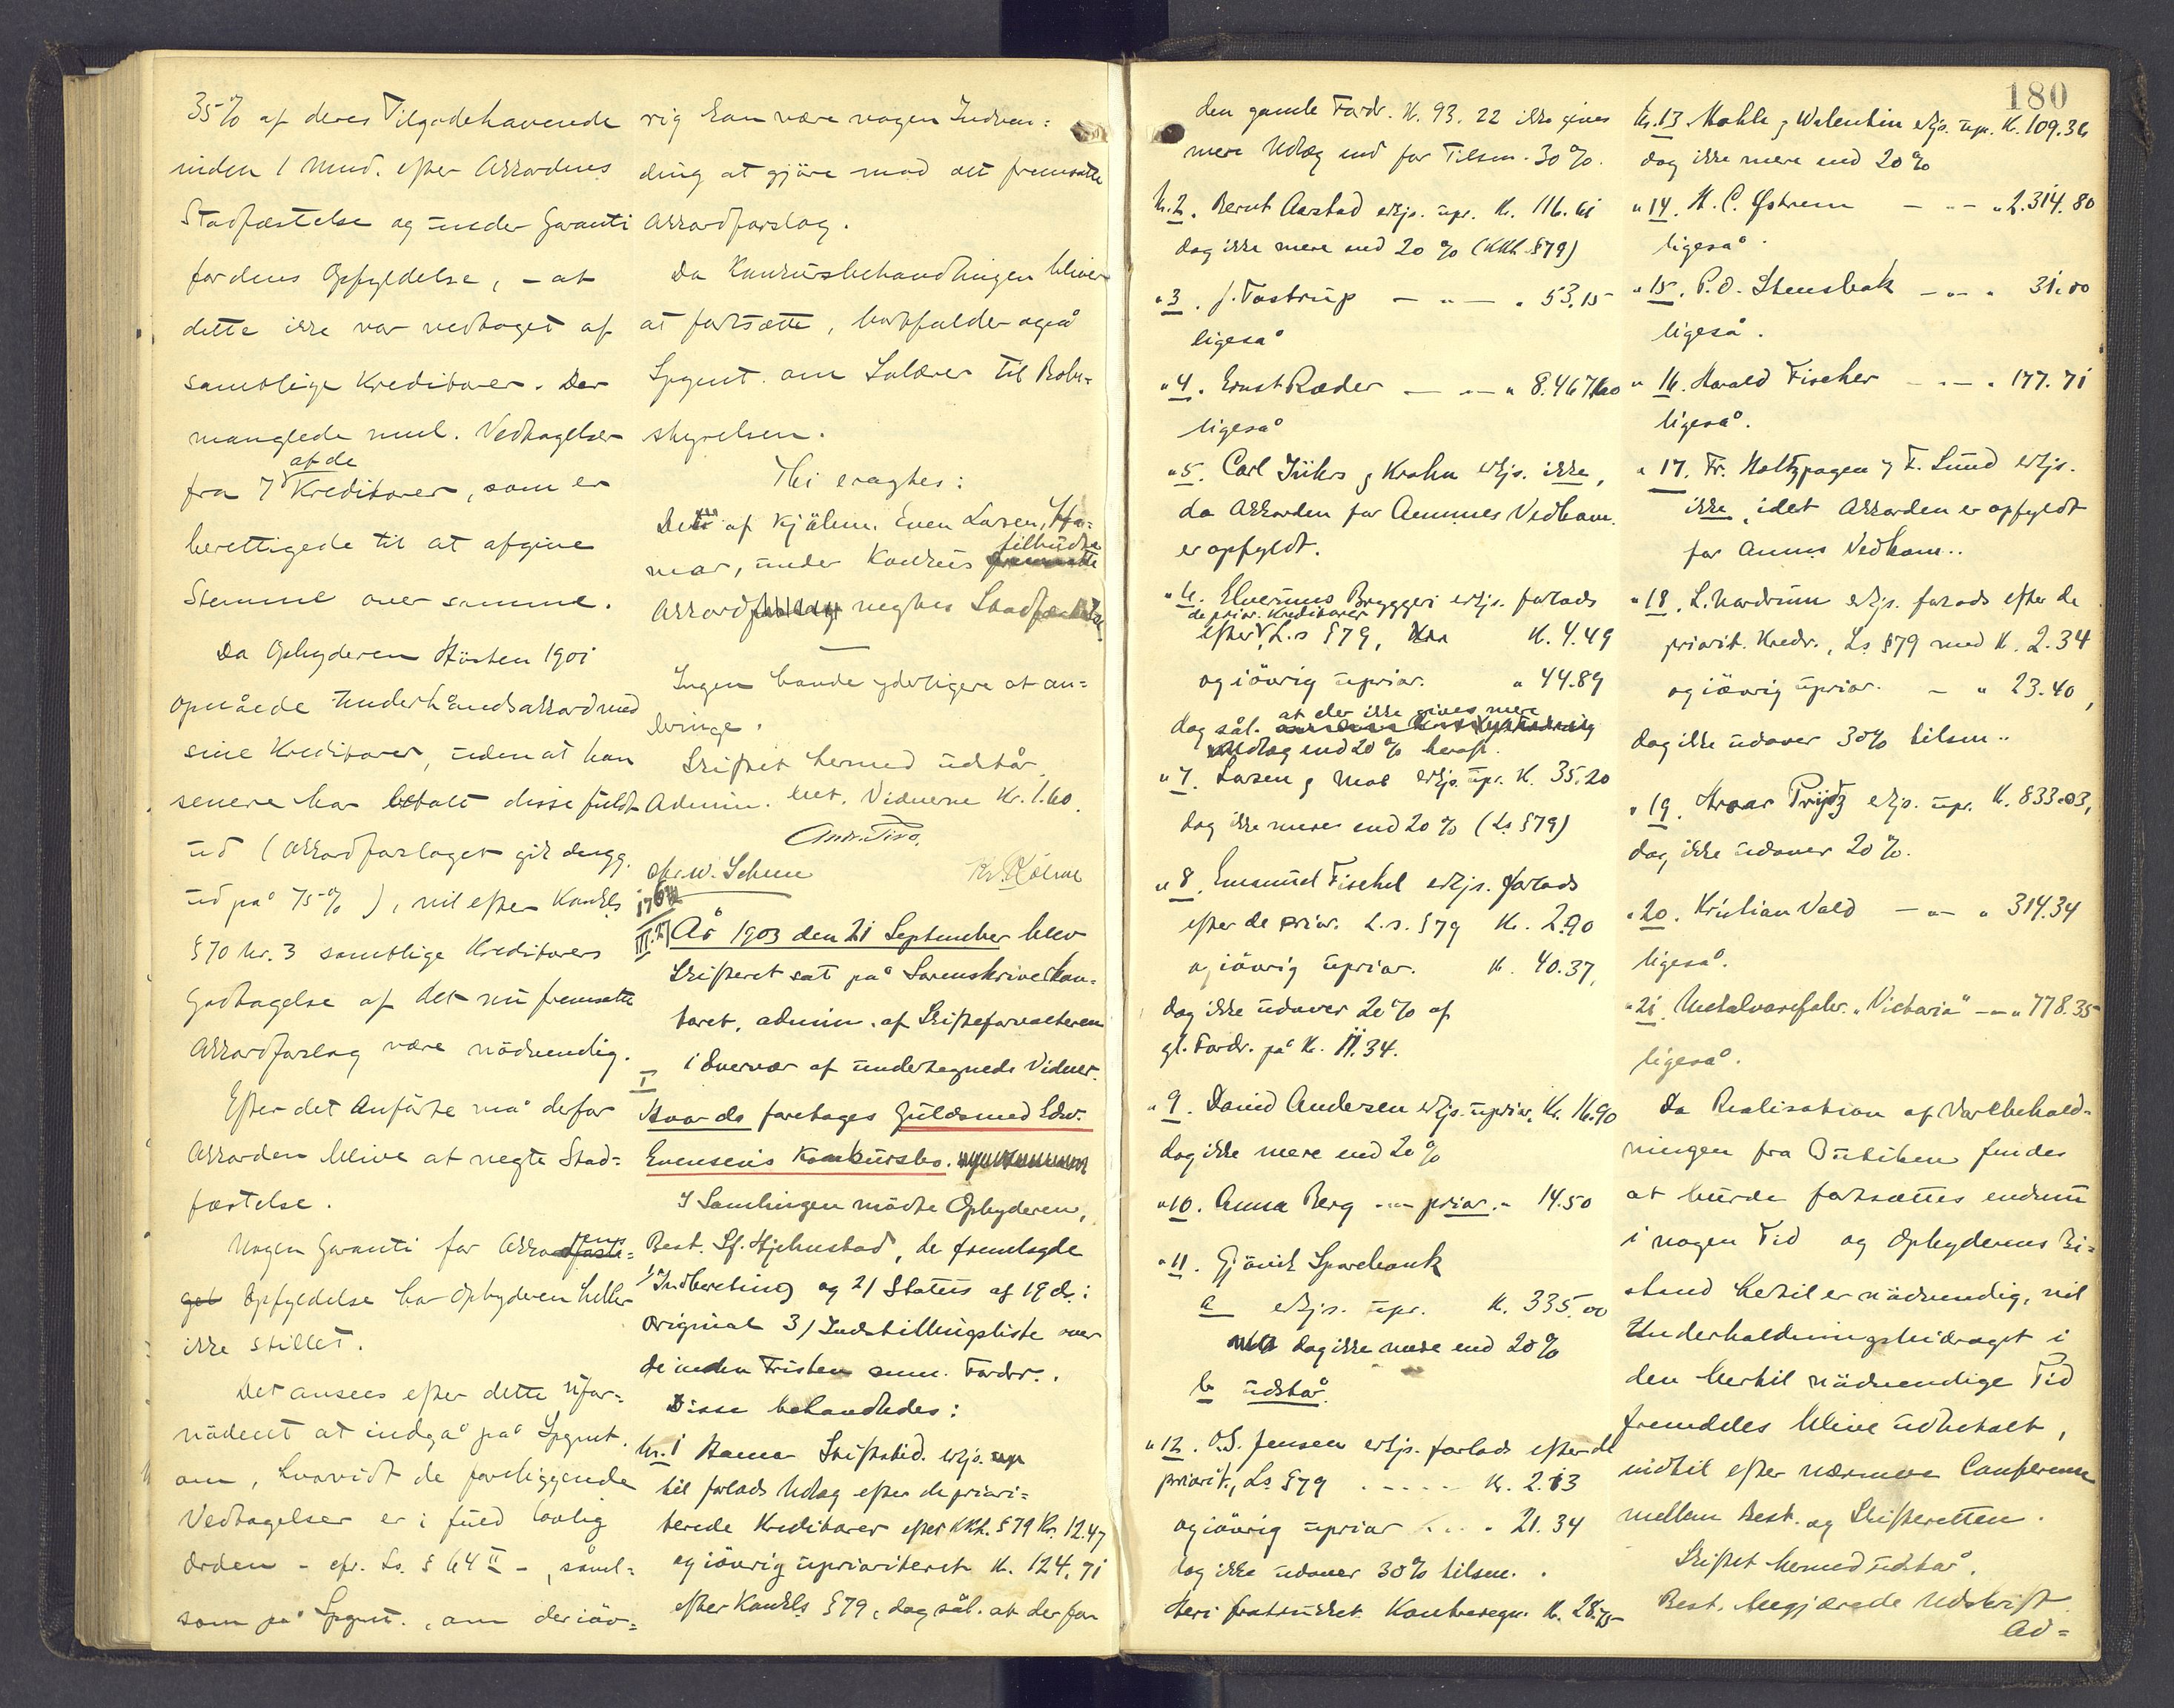 35% af deres Tilgodehavende
inden 1 Mnd. efter Akkordens
Stadfæstelse og under Garanti
for dens Opfyldelse, – at
dette ikke var vedtaget af
samtlige Kreditorer. Der
manglede nml. Vedtagelser
af de
fra 7 Kreditorer, som er
berettigede til at afgive
Stemme over samme.
Da Opbyderen Høsten 1901
opnåede Underhåndsakkord med
sine Kreditorer, uden at han
senere har betalt disse fuldt
ud (Akkordforslaget gik dengg.
ud på 75%), vil efter Konkls
§70 Nr. 3 samtlige Kreditorers
Godtagelse af det nu fremsatte
Akkordforslag være nödvendig.
Efter det Anførte må derfor
Akkorden blive at negte Stad=
fæstelse.
Nogen Garanti for Akkordens
Opfyldelse har Opbyderen heller
ikke stillet.
Det ansees efter dette ufor=
nödent at indgå på Spgmt.
om, hvorvidt de foreliggende
Vedtagelser er i fuld lovlig
Orden – cfr. Ls. § 64 II –, såvel=
som på Spgmt., om der iöv=
rig kan være nogen Indven=
ding at gjöre mod det fremsatte
Akkordforslag.
Da Konkursbehandlingen bliver
at fortsætte, bortfalder også
Spgmt. om Salærer til Bobe=
styrelsen.
Thi eragtes:
Den af Kjøbm. Even Larsen, Ha=
tilbudte
mar, under Konkurs
Akkord negtes Stadfæstelse.
Ingen havde yderligere at an=
bringe.
Skiftet hermed udstår.
Admin. bet. Vidnerne Kr. 1.60.
Chr. W. Schou
År 1903 den 21 September blev
Skifteret sat på Sorenskriverkon=
toret, admin. af Skifteforvalteren
i Overvær af undertegnede Vidner.
I
Hvor da foretoges Guldsmed Edw.
Evensens Konkursbo.
I Samlingen mödte Opbyderen,
Best. Sf. Hjelmstad, de fremlagde
1/ Indberetning og 2/ Status af 19 ds. i
Original 3/ Indstillingsliste over
de inden Fristen anm. Fordr..
Disse behandledes:
Nr. 1 Hamar Skiftstid. erkjs.
til forlods Udlæg efter de priori=
terede Kreditorer efter KKL. § 79 Kr. 12.47
og iövrig uprioriteret K. 124.71
efter Konkls § 79, dog sål. at der for
180
den gamle Fordr. K. 93.22 ikke gives
mere Udlæg end for Tilsm. 30%.
Nr. 2. Bernt Aastad erkjs. upr. Kr. 116.61
dog ikke mere end 20% (KKL §79)
" 3. J. Tostrup — " — " 53.15
ligeså
" 4. Ernst Ræder — " — " 8.467.60
ligeså
" 5. Carl Jührs & Krohn erkjs. ikke,
da Akkorden for dennes Vedkom.
er opfyldt.
" 6. Elverums Bryggeri erkjs. forlods
de prior. Kreditorer
efter L.s §79, K. 4.49
og iövrig uprior. " 44.89
at der ikke gives mere
dog sål.
Udlæg end 20%
" 7. Larsen & Moe erkjs. upr. K. 35.20
dog ikke mere end 20% (Ls §79)
" 8. Emanuel Fischel erkjs. forlods
efter de prior. L.s. §79 Kr. 2.90
og iövrig uprior. K. 40.37,
dog ikke udover 20% af
gl. Fordr. på K. 11.34.
" 9. David Andersen erkjs. uprior. Kr. 16.90
dog ikke mere end 20%
" 10. Anna Berg — " — prior. " 14.50
" 11. Gjövik Sparebank
a erkjs. upr. K. 335.00
dog ikke mere end 20%
b udstår.
" 12. O.S. Jensen erkjs. forlods efter de
priorit., Ls §79 . . . . . K. 2.13
og iövrig uprior . . . " 21.34
dog ikke udover 30% tilsm. .
Heri fratrukket Kontraregn. K. 28.75
Nr. 13. Mohle & Walentin erkjs. upr. K. 109.36
dog ikke mere end 20%
" 14. H. C. Østrem — " — " 2.314.80
ligeså.
" 15. P.O. Stensbak — " — " 31.00
ligeså.
" 16. Harald Fischer — " — " 177.71
ligeså.
" 17. Fr. Holtzpagen & F. Lund erkjs.
ikke, idet Akkorden er opfyldt
for Annis Vedkom..
" 18. L. Nordrum erkjs. forlods efter de
priorit. Kredr., Ls §79 med K. 2.34
og iøvrig uprior. — " 23.40,
dog ikke udover 30% tilsm..
" 19. Hroar Prydz erkjs. upr. K. 833.03,
dog ikke udover 20%.
" 20. Kristian Vold — " — " 314.34
ligeså.
" 21. Metalvarefabr. "Victoria" — " — " 778.35
ligeså.
Da Realisation af Varebehold=
ningen fra Butiken findes
at burde fortsættes endnu
i nogen Tid og Opbyderens Bi=
stand hertil er nödvendig, vil
Underholdningsbidraget i
den hertil nödvendige Tid
fremdeles blive udbetalt,
indtil efter nærmere Conference
mellem Best. og Skifteretten.
Skiftet hermed udstår.
Best. begjærede Udskrift.
Ad=